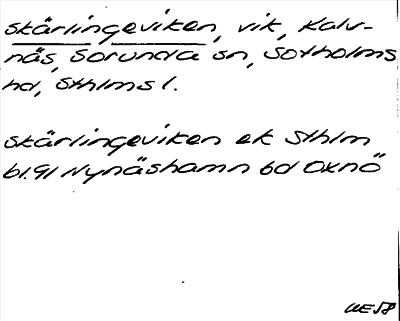 Skärlingeviken, vik, Kalv-
näs, Sorunda sn, Sotholms
hd, Sthlms l.
Skärlingeviken ek Sthlm
bl.91 Nynäshamn 6d Oxnö
UE58